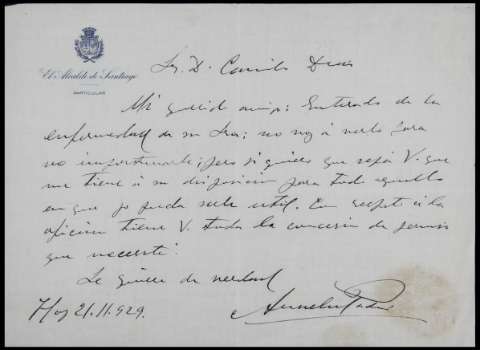 El Alcalde de Santiago
PARTICULAR
Sr. D. Camilo Diaz
Mi querido amigo: Enterado de la
enfermedad de su Sra; no voy a verle para
no importunarle; pero si quiero que sepa V. que
me tiene a su disposición para todo aquello
en que yo pueda serle util. Con respecto a la
oficina tiene V. toda la concesión de permiso
que necesite.
Le quiere de verdad
Hoy 21.11.929.